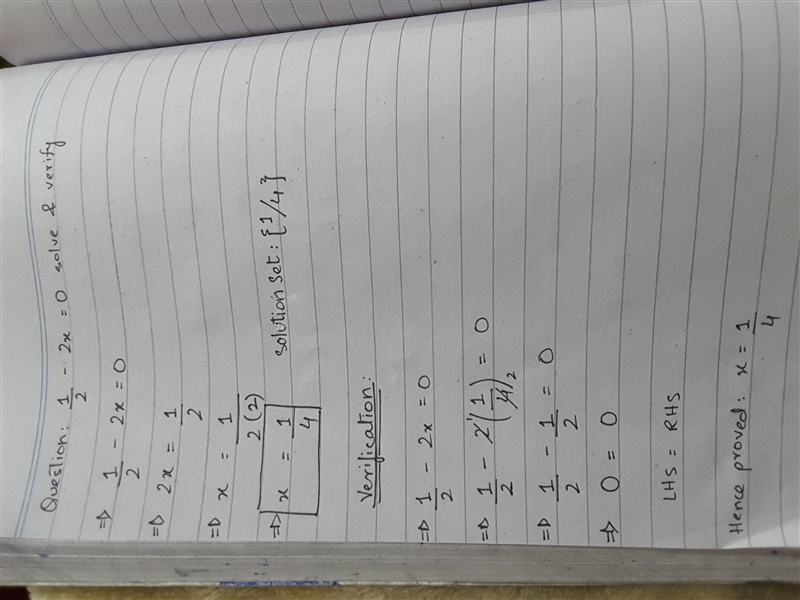 Question: 1/2 - 2x = 0 solve & verify
=> 1/2 - 2x = 0
=> 2x = 1/2
=> x = 1/2(2)
=> x = 1/4 Solution Set: {1/4}
Verification:
=> 1/2 - 2x = 0
=> 1/2 - 2¹(1/4₂) = 0
=> 1/2 - 1/2 = 0
=> 0 = 0
LHS = RHS
Hence proved: x = 1/4